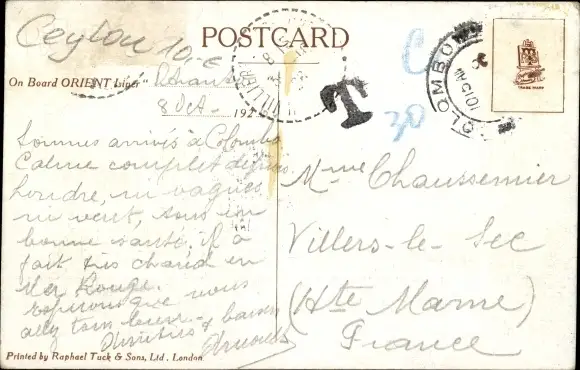 Ceylon
POSTCARD
On Board ORIENT Liner
8 Oct. 192
T
COLOMBO
TRADE MARK
Sommes arrivés à Colombo
Calme complet depuis
Londre, ni vagues,
ni vent, tous en
bonne santé. Il a
fait très chaud en
Mer Rouge.
espérons que vous
allez tous bien.
Amitiés & baisers
Mme Chaussemier
Villers-le-Sec
(Hte Marne)
France
Printed by Raphael Tuck & Sons, Ltd. London